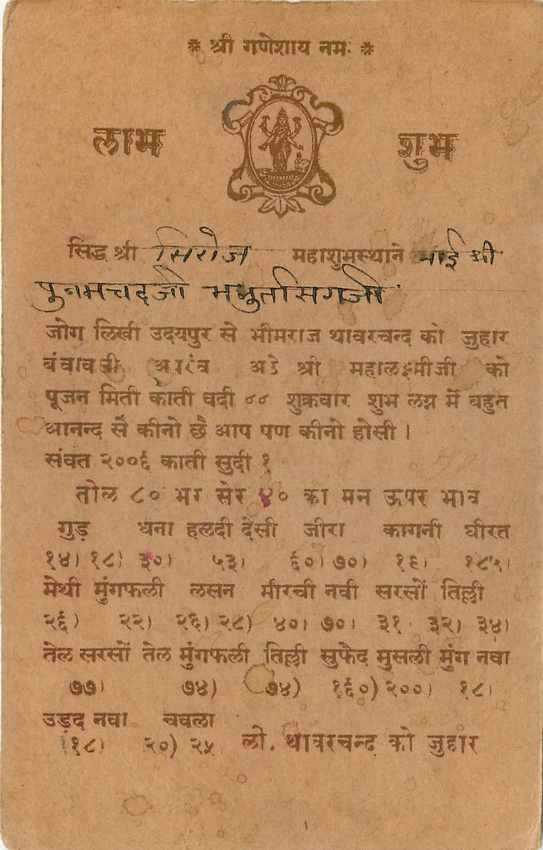 * श्री गणेशाय नमः *
लाभ शुभ
सिद्ध श्री सिरोज महाशुभस्थाने भाई श्री
पुनमचदजी भभुतसिगजी
जोग लिखी उदयपुर से भीमराज थावरचन्द को जुहार
बंचावजी अपरंच अठे श्री महालक्ष्मीजी को
पूजन मिती काती वदी ०० शुक्रवार शुभ लग्न में बहुत
आनन्द सें कीनो छै आप पण कीनो होसी ।
संवत २००६ काती सुदी १
तोल ८० भर सेर ४० का मन ऊपर भाव
गुड़ धना हलदी देसी जीरा कागनी घीरत
१४) १८) ३०) ५३) ६०) ७०) १६) १८५)
मेथी मुंगफली लसन मीरची नवी सरसों तिल्ली
२६) २२) २६) २८) ४०) ७०) ३१ ३२) ३४)
तेल सरसों तेल मुंगफली तिल्ली सुफेद मुसली मुंग नवा
७७) ७४) ७४) १६०) २००) १८)
उड़द नवा चवला
१८) २०) २५ ली. थावरचन्द को जुहार